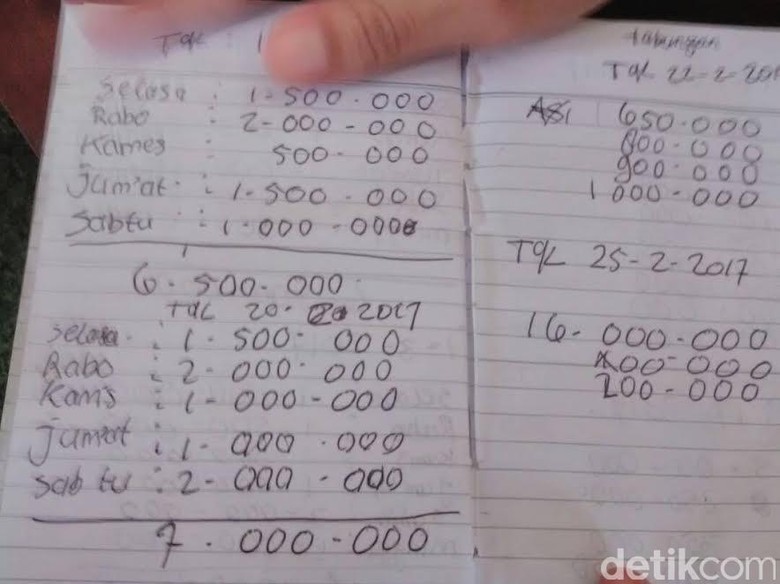 Tgl : 1
Selasa : 1-500.000
Rabo : 2-000-000
Kames : 500-000
Jum'at : 1-500-000
Sabtu : 1-000-000
6.500-000
Tgl 20- 2017
Selasa : 1-500-000
Rabo : 2-000-000
Kams : 1-000-000
Jumat : 1-000.000
Sabtu : 2-000-000
7.000-000
tabungan
Tgl 22-2-201
650-000
800-000
900-000
1000-000
Tgl 25-2-2017
16-000-000
400-000
200-000
detikcom